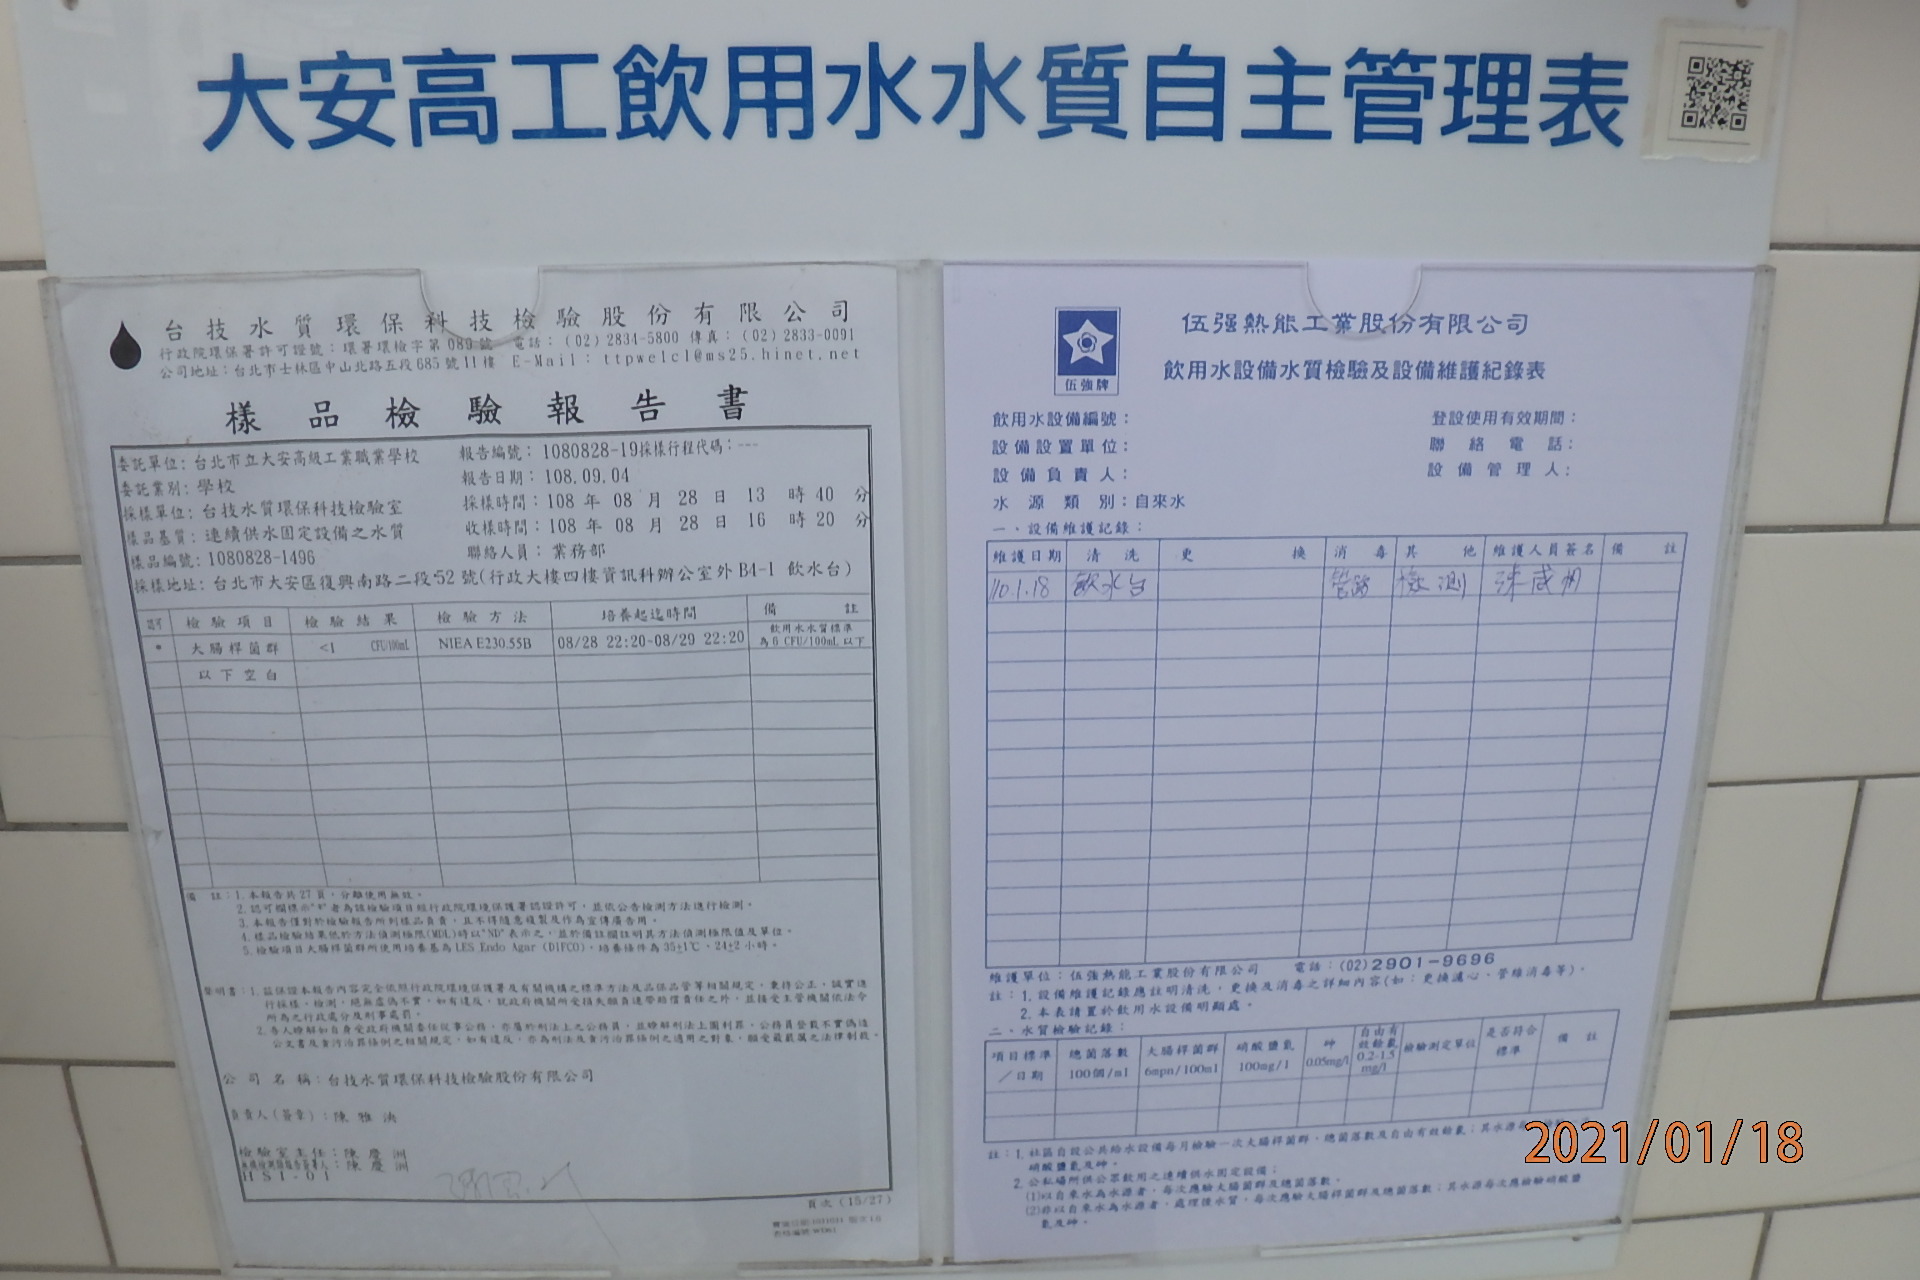 大安高工飲用水水質自主管理表
台技水質環保科技檢驗股份有限公司
行政院環保署許可證號：環署環檢字第089號 電話：(02)2834-5800 傳真：(02)2833-0091
公司地址：台北市士林區中山北路五段685號11樓 E-Mail：ttpwelcl@ms25.hinet.net
樣品檢驗報告書
委託單位：台北市立大安高級工業職業學校 報告編號：1080828-19採樣行程代碼：---
委託業別：學校 報告日期：108.09.04
採樣單位：台技水質環保科技檢驗室 採樣時間：108 年 08 月 28 日 13 時 40 分
樣品基質：連續供水固定設備之水質 收樣時間：108 年 08 月 28 日 16 時 20 分
樣品編號：1080828-1496 聯絡人員：業務部
採樣地址：台北市大安區復興南路二段52號(行政大樓四樓資訊科辦公室外 B4-1 飲水台)
認可 檢驗項目 檢驗結果 檢驗方法 培養起迄時間 備註
* 大腸桿菌群 <1 CFU/100mL NIEA E230.55B 08/28 22:20~08/29 22:20 飲用水水質標準為6 CFU/100mL以下
以下空白
備 註：1.本報告共27頁，分離使用無效。
2.認可欄標示"*"者為該檢驗項目經行政院環境保護署認證許可，並依公告檢測方法進行檢測。
3.本報告僅對於檢驗報告所列樣品負責，且不得隨意複製及作為宣傳廣告用。
4.樣品檢驗結果低於方法偵測極限(MDL)時以"ND"表示之，並於備註欄註明其方法偵測極限值及單位。
5.檢驗項目大腸桿菌群所使用培養基為LES Endo Agar (DIFCO)，培養條件為35±1℃、24±2小時。
聲明書：1.茲保證本報告內容完全依照行政院環境保護署及有關機構之標準方法及品保品管等相關規定，秉持公正、誠實進
行採樣、檢測，絕無虛偽不實，如有違反，就政府機關所受損失願負連帶賠償責任之外，並接受主管機關依法令
所為之行政處分及刑事處罰。
2.吾人瞭解如自身受政府機關委任從事公務，亦屬於刑法上之公務員，並瞭解刑法上圖利罪、公務員登載不實偽造
公文書及貪污治罪條例之相關規定，如有違反，亦為刑法及貪污治罪條例之適用之對象，願受最嚴厲之法律制裁。
公司名稱：台技水質環保科技檢驗股份有限公司
負責人(簽章)：陳雅
檢驗室主任：陳慶洲
陳慶洲
HSI-01
頁次 (15/27)
伍強牌
伍强熱能工業股份有限公司
飲用水設備水質檢驗及設備維護紀錄表
飲用水設備編號： 登設使用有效期間：
設備設置單位： 聯絡電話：
設備負責人： 設備管理人：
水源類別：自來水
一、設備維護記錄：
維護日期 清洗 更換 消毒 其他 維護人員簽名 備註
110.1.18 飲水台 管路 檢測
維護單位：伍强熱能工業股份有限公司 電話：(02)2901-9696
註：1.設備維護記錄應註明清洗、更換及消毒之詳細內容(如：更換濾心、管線消毒等)。
2.本表請置於飲用水設備明顯處。
二、水質檢驗記錄：
項目標準／日期 總菌落數 100個/ml 大腸桿菌群 6mpn/100ml 硝酸鹽氮 100mg/l 砷 0.05mg/l 自由有效餘氯 0.2-1.5 mg/l 檢驗測定單位 是否符合標準 備註
註：1.社區自設公共給水設備每月檢驗一次大腸桿菌群、總菌落數及自由有效餘氯；其水源每
硝酸鹽氮及砷。
2.公私場所供公眾飲用之連續供水固定設備：
(1)以自來水為水源者，每次應驗大腸桿菌群及總菌落數。
(2)非以自來水為水源者，處理後水質，每次應驗大腸桿菌群及總菌落數；其水源每次應檢驗硝酸鹽
氮及砷。
2021/01/18